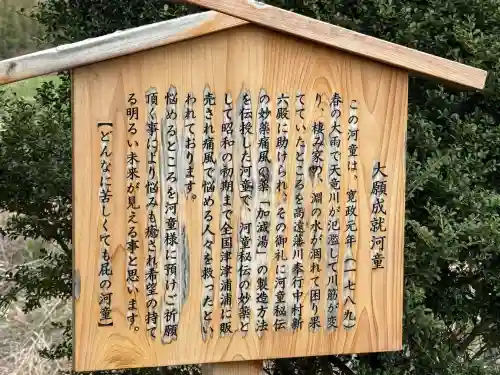 大願成就河童
この河童は、寛政元年(一七八九)
春の大雨で天竜川が氾濫して川筋が変
り、棲み家の淵の水が涸れて困り果
てていたところを高遠藩川奉行中村新
六殿に助けられ、その御礼に河童秘伝
の妙薬痛風の薬「加減湯」の製造方法
を伝授した河童で、河童秘伝の妙薬と
して昭和の初期まで全国津津浦浦に販
売され痛風で悩める人々を救ったとい
われております。
悩めるところを河童様に預けご祈願
頂く事により悩みも癒され希望の持て
る明るい未来が見える事と思います。
【どんなに苦しくても屁の河童】